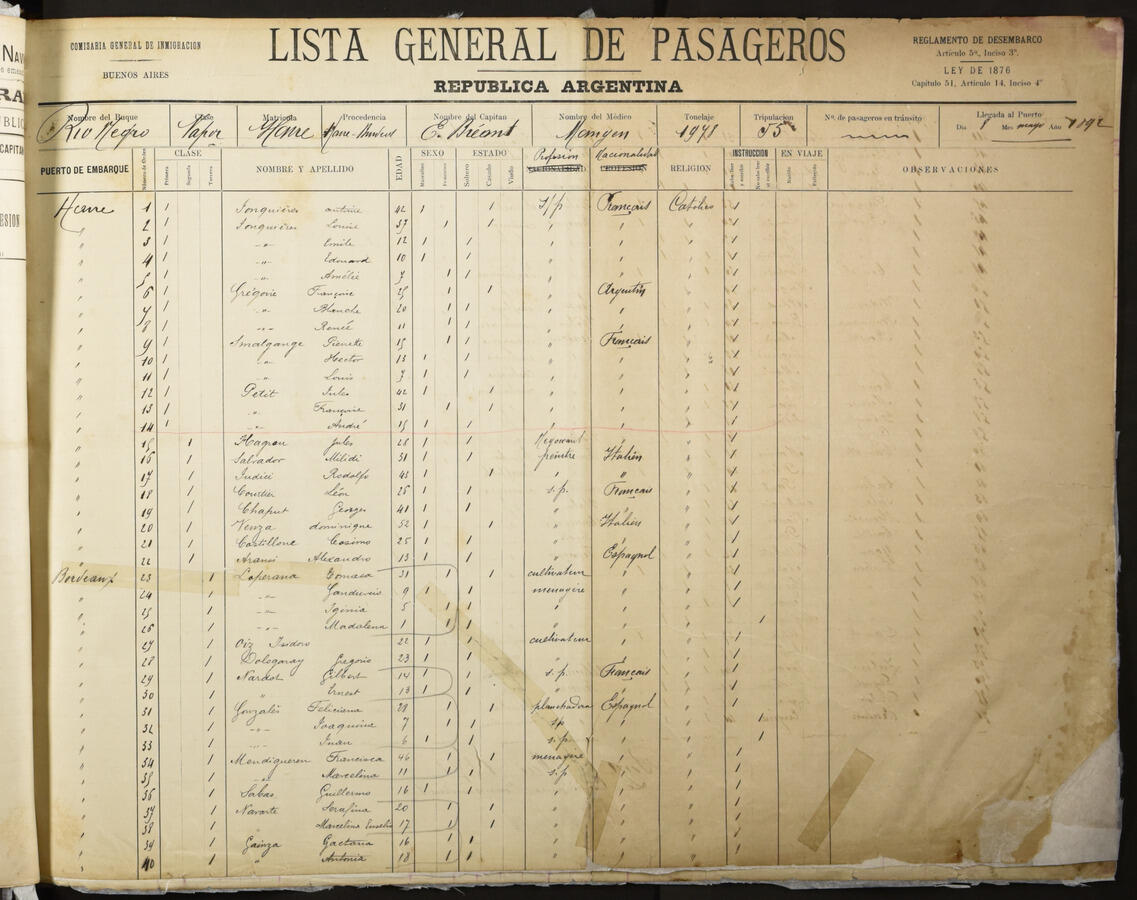 COMISARIA GENERAL DE INMIGRACION
BUENOS AIRES
LISTA GENERAL DE PASAGEROS
REPUBLICA ARGENTINA
REGLAMENTO DE DESEMBARCO
Artículo 5º, Inciso 3º.
LEY DE 1876
Capítulo 51, Artículo 14, Inciso 4º
Nombre del Buque Clase Matrícula Procedencia Nombre del Capitan Nombre del Médico Tonelaje Tripulacion Nº. de pasageros en tránsito Llegada al Puerto
Rio Negro Vapor Havre E. Bréant Día Mes mayo Año 1892
PUERTO DE EMBARQUE Número de Orden CLASE Primera Segunda Tercera NOMBRE Y APELLIDO EDAD SEXO Masculino Femenino ESTADO Soltero Casado Viudo Profesion Nacionalidad RELIGION INSTRUCCION EN VIAJE OBSERVACIONES
Havre 1 Jonquières antoine 42 s/p Français Católico
2 Jonquières Louise 37
3 Emile 12
4 Edouard 10
5 Amélie 7
6 Grégoire Françoise 25 Argentin
7 Blanche 20
8 Renée 11
9 Smalgange Pierrette 15 Français
10 Hector 13
11 Louis 7
12 Petit Jules 42
13 Françoise 31
14 André 15
15 Hagnau Jules 28 Negociant
16 Salvador Milidi 31 peintre Italien
17 Iudici Rodolfo 43
18 Courtier Léon 25 s.p. Français
19 Chaput Georges 41
20 Venza dominique 52 Italien
21 Castillone Cosimo 25
22 Aransi Alexandro 13 Espagnol
Bordeaux 23 Loperana Tomasa 31 cultivateur
24 9 menagère
25 Iginia 5
26 Madalena 1
27 Oiz Isidoro 22 cultivateur
28 Dolagaray Gregorio 23
29 Nardot Gilbert 14 s.p. Français
30 Ernest 13
31 Gonzalès Feliciana 29 planchadora Espagnol
32 Joaquina 7 sp
33 Juan 6 s.p.
34 Mendigueren Francisca 46 menagère
35 Marcelina 11 s.p
36 Sabas Guillermo 16
37 Navarte Serafina 20
38 Marcelina 17
39 Gainza Gaetana 16
40 Antonia 18